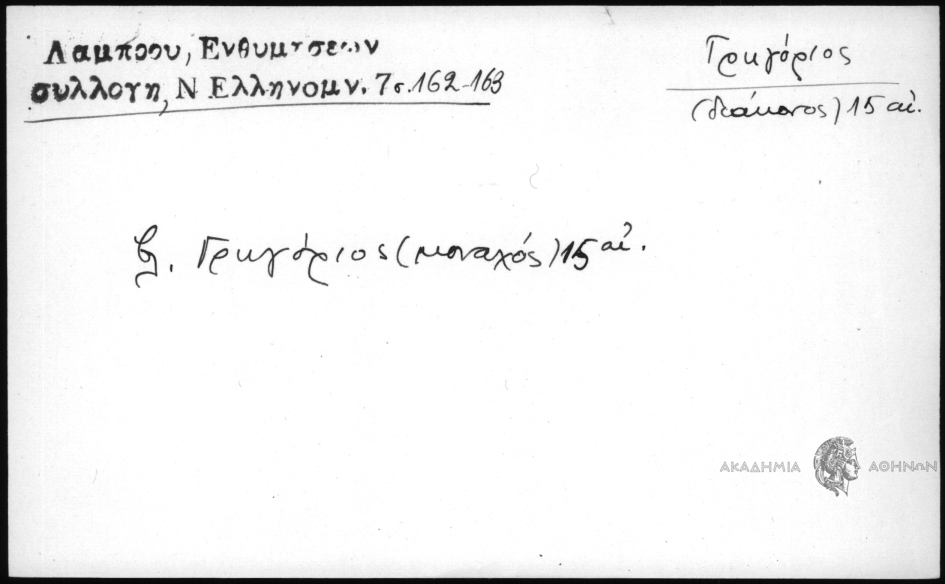 Λαμπρου, Ενθυμησεων
συλλογη, Ν Ελληνομν. 7 σ. 162-163
Γρηγόριος
(διάκονος) 15 αἰ.
βλ. Γρηγόριος (μοναχός) 15 αἰ.
ΑΚΑΔΗΜΙΑ ΑΘΗΝΩΝ